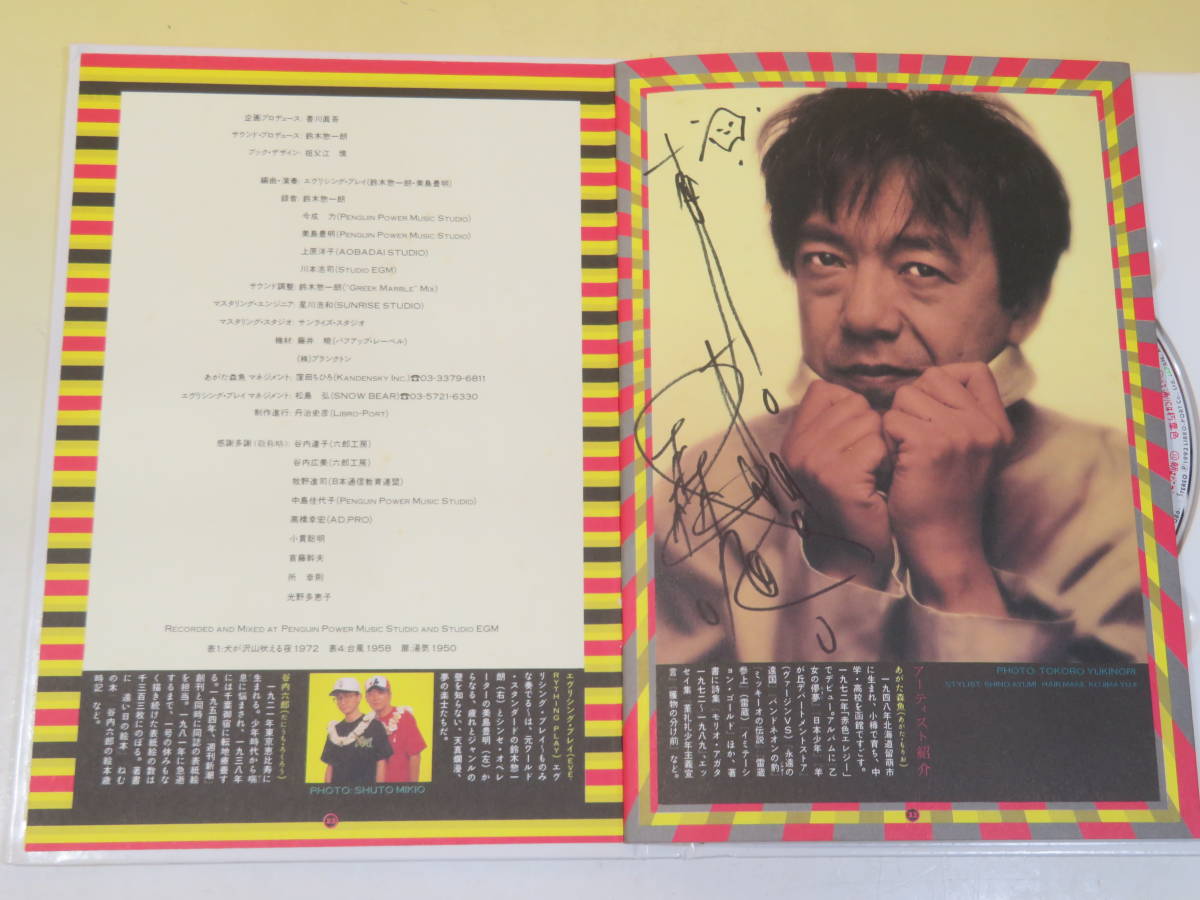 企画プロデュース: 香川眞吾
サウンド・プロデュース: 鈴木惣一朗
ブック・デザイン: 祖父江 慎
編曲・演奏: エヴリシング・プレイ(鈴木惣一朗・美島豊明)
録音: 鈴木惣一朗
今成 力(PENGUIN POWER MUSIC STUDIO)
美島豊明(PENGUIN POWER MUSIC STUDIO)
上原洋子(AOBADAI STUDIO)
川本浩司(STUDIO EGM)
サウンド調整: 鈴木惣一朗("GREEK MARBLE" MIX)
マスタリング・エンジニア: 星川浩和(SUNRISE STUDIO)
マスタリング・スタジオ: サンライズ・スタジオ
機材: 藤井 暁(パフアップ・レーベル)
(株)プランクトン
あがた森魚 マネジメント: 窪田ちひろ(KANDENSKY INC.)☎03-3379-6811
エヴリシング・プレイ マネジメント: 松島 弘(SNOW BEAR)☎03-5721-6330
制作進行: 丹治史彦(LIBRO-PORT)
感謝多謝(敬称略): 谷内達子(六郎工房)
谷内広美(六郎工房)
牧野進司(日本通信教育連盟)
中島佳代子(PENGUIN POWER MUSIC STUDIO)
高橋幸宏(AD.PRO)
小貫聡明
首藤幹夫
所 幸則
光野多恵子
RECORDED AND MIXED AT PENGUIN POWER MUSIC STUDIO AND STUDIO EGM
表1:犬が沢山吠える夜 1972 表4:台風 1958 扉:湯気 1950
エヴリシング・プレイ(EVE
RYTHING PLAY) エヴ
リシング・プレイ〜ものみ
な奏でる〜は、元ワールド
・スタンダードの鈴木惣一
朗(右)とシンセ・オペレ
ーターの美島豊明(左)か
らなる、疲れとジャンルの
壁も知らない、天真爛漫、
夢の楽士たちだ。
PHOTO: SHUTO MIKIO
谷内六郎(たにうち・ろくろう)
一九二一年東京恵比寿に
生まれる。少年時代から喘
息に悩まされ、一九三八年
には千葉御宿に転地療養す
る。一九五四年、「週刊新潮」
創刊と同時に同誌の表紙絵
を担当。一九八一年に急逝
するまで、一号の休みもな
く描き続けた表紙絵の数は
千三百三枚にのぼる。著書
に「遠い日の絵本」「ねむ
の木」「谷内六郎の絵本歳
時記」など。
33
PHOTO: TOKORO YUKINORI
STYLIST: SHINO AYUMI HAIR MAKE: KOJIMA YUJI
アーティスト紹介
あがた森魚(あがた・もりお)
一九四八年北海道留萌市
に生まれ、小樽で育ち、中
学・高校を函館ですごす。
一九七二年「赤色エレジー」
でデビュー。アルバムに「乙
女の儚夢」「日本少年」「羊
が丘デパートメントストア」
(ヴァージンVS)「永遠の
遠国」「バンドネオンの豹」
「ミッキーオの伝説」「雷蔵
参上」(雷蔵)「イミテーシ
ョン・ゴールド」ほか、著
書に詩集「モリオ・アガタ
一九七二〜一九八九」、エッ
セイ集「菫礼礼少年主義宣
言」「獲物の分け前」など。
33